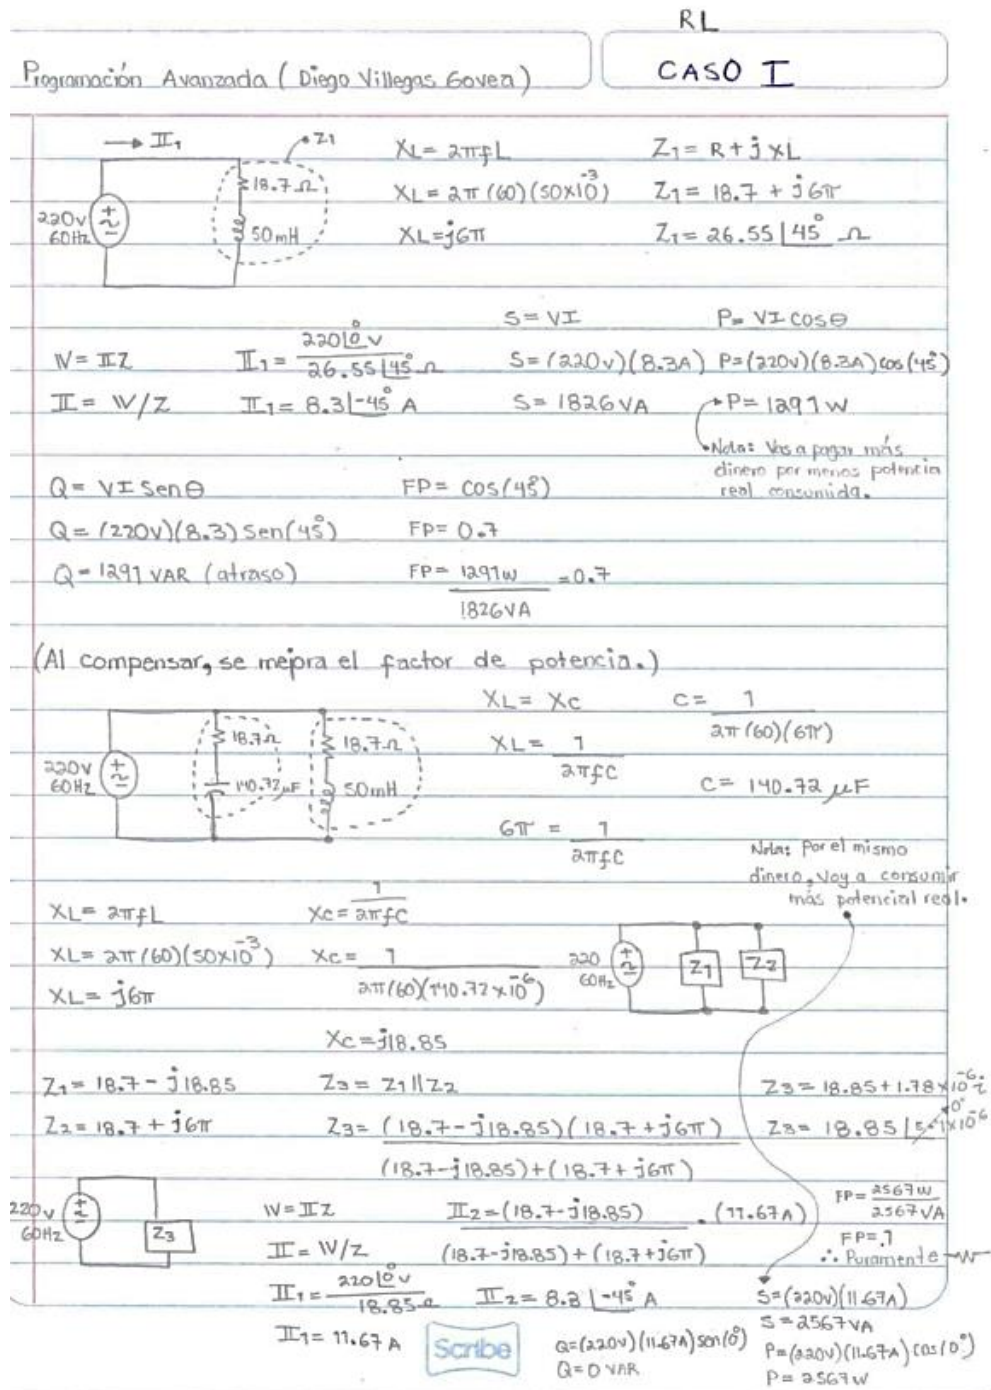 RL
Programación Avanzada ( Diego Villegas Govea)
CASO I
→ II₁
Z1
18.7 Ω
220v
60Hz
50 mH
XL= 2πfL
XL= 2π (60) (50x10⁻³)
XL=j6π
Z1 = R + j XL
Z1= 18.7 + j6π
Z1= 26.55 ∟45° Ω
S = VI
P= VI COSθ
V = IIZ
II1 = 220∟0° v / 26.55∟45° Ω
S=(220v)(8.3A)
P=(220v)(8.3A)cos(45°)
II = V/Z
II1= 8.3∟-45° A
S= 1826 VA
P= 1291 W
Nota: Vas a pagar más
dinero por menos potencia
real consumida.
Q = VI Senθ
FP= COS(45°)
Q= (220v)(8.3) Sen(45°)
FP= 0.7
Q= 1291 VAR (atraso)
FP= 1291w / 1826VA =0.7
(Al compensar, se mejora el factor de potencia.)
220v
60Hz
18.7Ω
140.72μF
18.7Ω
50mH
XL= XC
XL= 1 / 2πfC
6π = 1 / 2πfC
C= 1 / 2π(60)(6π)
C= 140.72 μF
Nota: Por el mismo
dinero, voy a consumir
más potencial real.
XL= 2πfL
XL= 2π(60)(50x10⁻³)
XL= j6π
Xc= 1 / 2πfC
Xc= 1 / 2π(60)(140.72x10⁻⁶)
Xc=j18.85
220
60Hz
Z1
Z2
Z1= 18.7- j18.85
Z3= Z1||Z2
Z3= 18.85+1.78x10⁻⁶i
Z2= 18.7+ j6π
Z3= (18.7-j18.85)(18.7+j6π) / (18.7-j18.85)+(18.7+j6π)
Z3= 18.85 0°
220v
60Hz
Z3
V=IIZ
II = V/Z
II1= 220∟0° v / 18.85Ω
II1= 11.67 A
II2=(18.7-j18.85) / (18.7-j18.85)+(18.7+j6π) .(11.67A)
II2= 8.3∟-45° A
FP= 2567W / 2567VA
FP=.1
∴ Puramente
S=(220v)(11.67A)
S=2567VA
P=(220v)(11.67A)cos(0°)
P= 2567W
Q=(220v)(11.67A)sen(0°)
Q=0 VAR
Scribe